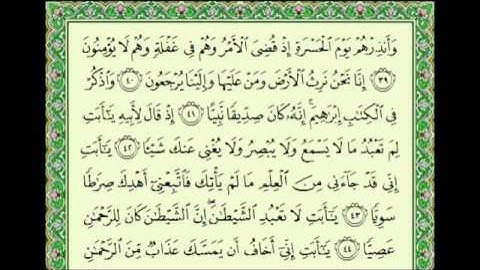 وَأَنذِرْهُمْ يَوْمَ الْحَسْرَةِ إِذْ قُضِيَ الْأَمْرُ وَهُمْ فِي غَفْلَةٍ وَهُمْ لَا يُؤْمِنُونَ
٣٩ إِنَّا نَحْنُ نَرِثُ الْأَرْضَ وَمَنْ عَلَيْهَا وَإِلَيْنَا يُرْجَعُونَ ٤٠ وَاذْكُرْ
فِي الْكِتَٰبِ إِبْرَٰهِيمَ ۚ إِنَّهُ كَانَ صِدِّيقًا نَّبِيًّا ٤١ إِذْ قَالَ لِأَبِيهِ يَٰٓأَبَتِ
لِمَ تَعْبُدُ مَا لَا يَسْمَعُ وَلَا يُبْصِرُ وَلَا يُغْنِي عَنكَ شَيْئًا ٤٢ يَٰٓأَبَتِ
إِنِّي قَدْ جَآءَنِي مِنَ الْعِلْمِ مَا لَمْ يَأْتِكَ فَاتَّبِعْنِي أَهْدِكَ صِرَٰطًا
سَوِيًّا ٤٣ يَٰٓأَبَتِ لَا تَعْبُدِ الشَّيْطَٰنَ ۖ إِنَّ الشَّيْطَٰنَ كَانَ لِلرَّحْمَٰنِ
عَصِيًّا ٤٤ يَٰٓأَبَتِ إِنِّيٓ أَخَافُ أَن يَمَسَّكَ عَذَابٌ مِّنَ الرَّحْمَٰنِ